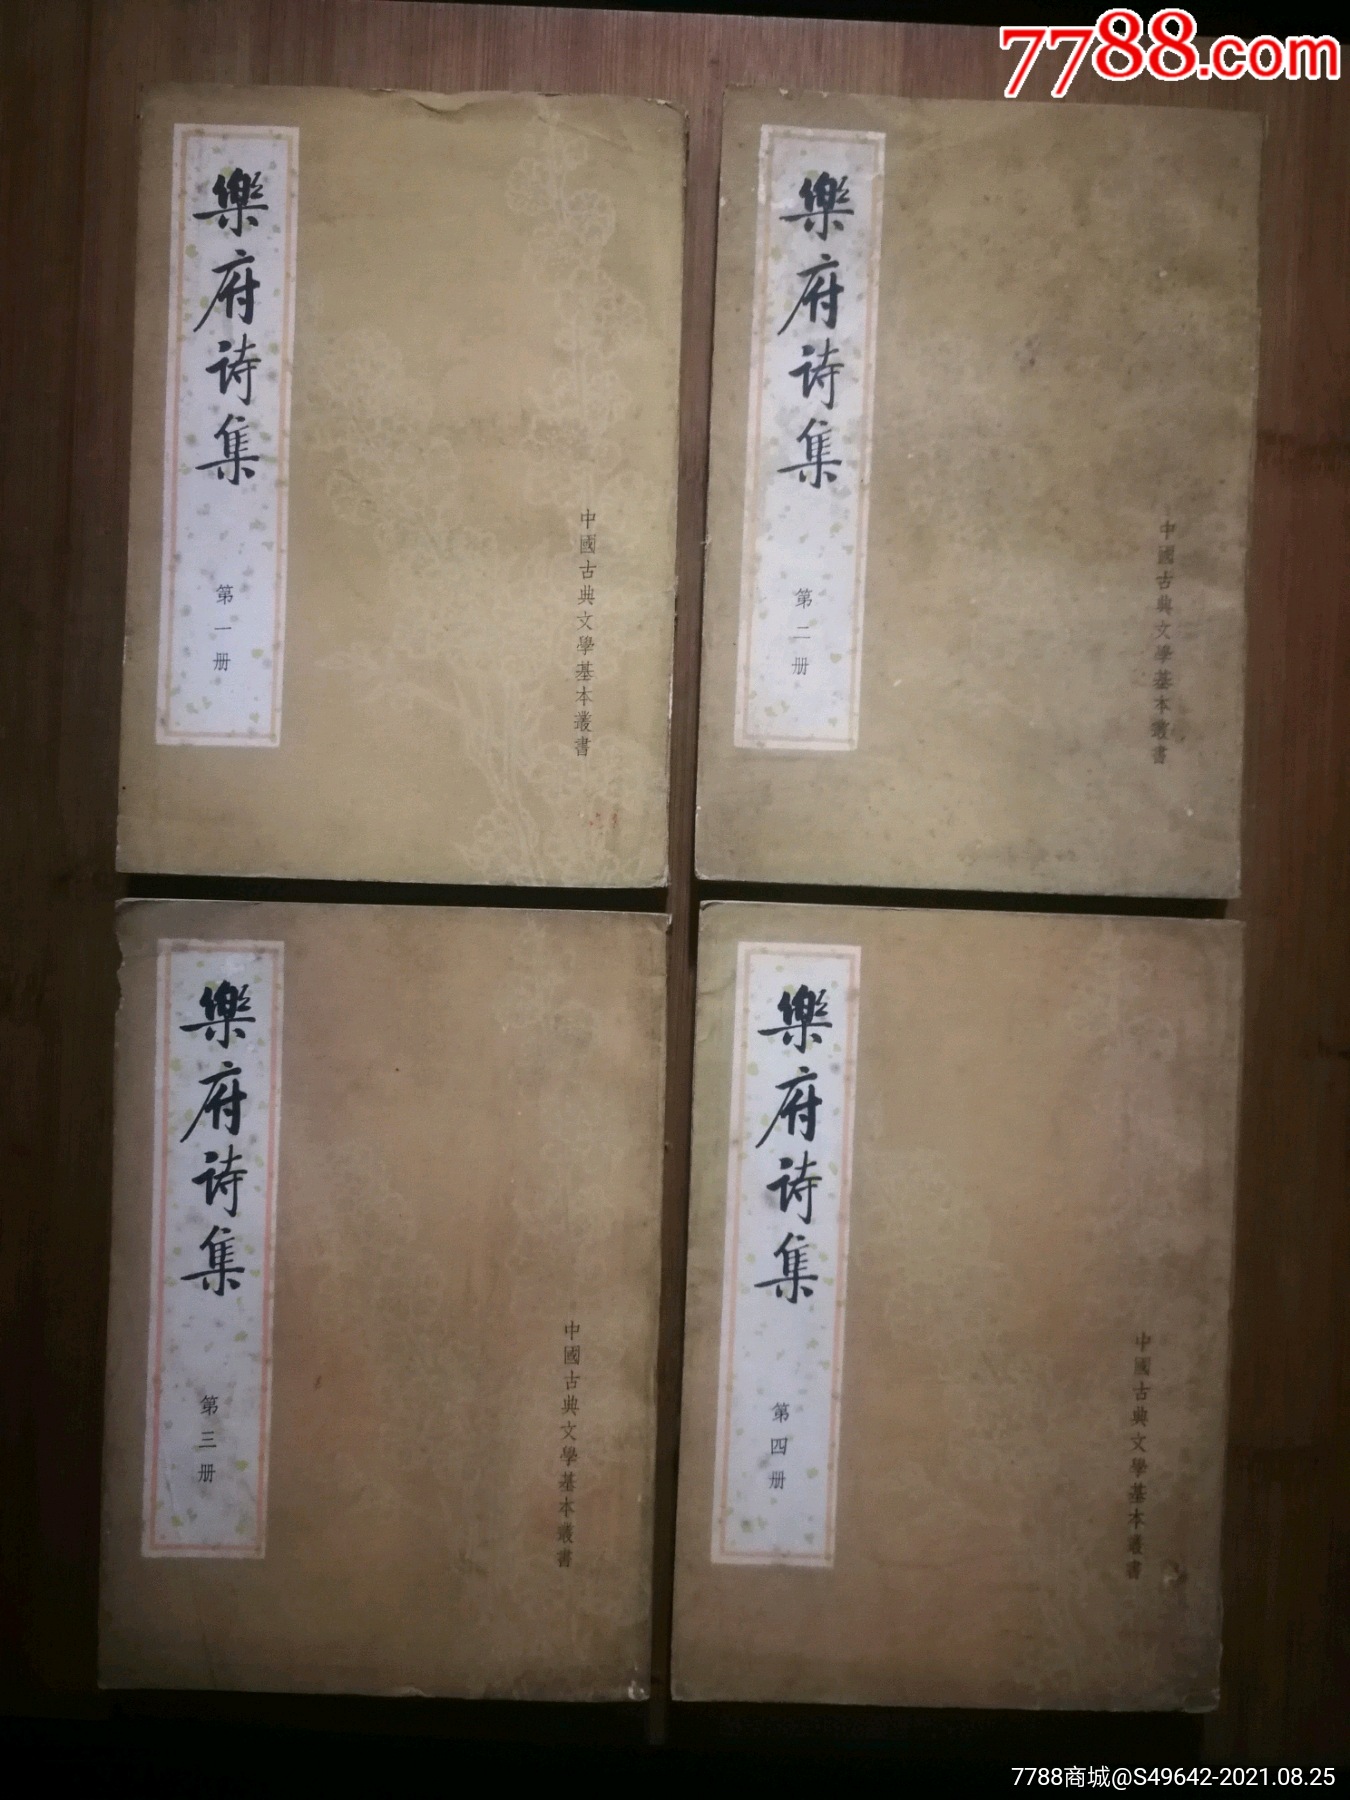 7788.com
樂府诗集
第一册
中國古典文學基本叢書
樂府诗集
第二册
中國古典文學基本叢書
樂府诗集
第三册
中國古典文學基本叢書
樂府诗集
第四册
中國古典文學基本叢書
7788商城@S49642-2021.08.25